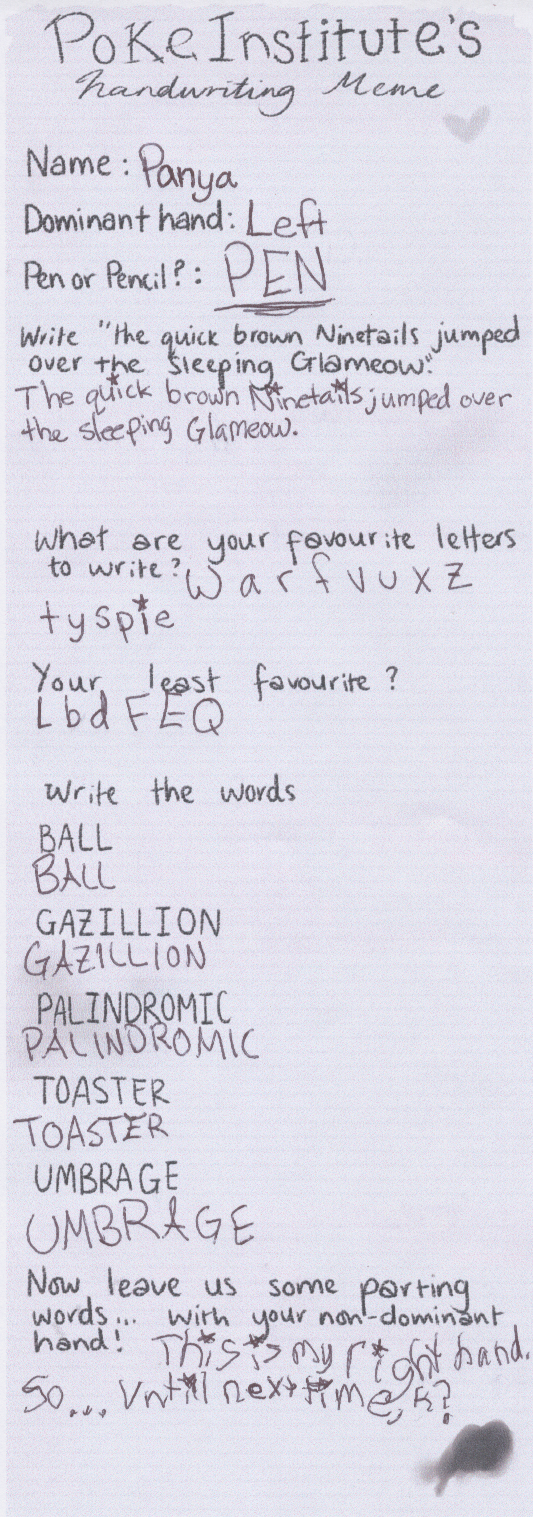 PokeInstitute's
Handwriting Meme
Name: Panya
Dominant hand: Left
Pen or Pencil?: PEN
Write "the quick brown Ninetails jumped
over the sleeping Glameow."
The quick brown Ninetails jumped over
the sleeping Glameow.
What are your favourite letters
to write? W a r f v u x z
t y s p i e
Your least favourite?
L b d F E Q
Write the words
BALL
BALL
GAZILLION
GAZILLION
PALINDROMIC
PALINDROMIC
TOASTER
TOASTER
UMBRAGE
UMBRAGE
Now leave us some parting
words... with your non-dominant
hand! This is my right hand.
So... Until next time, k?